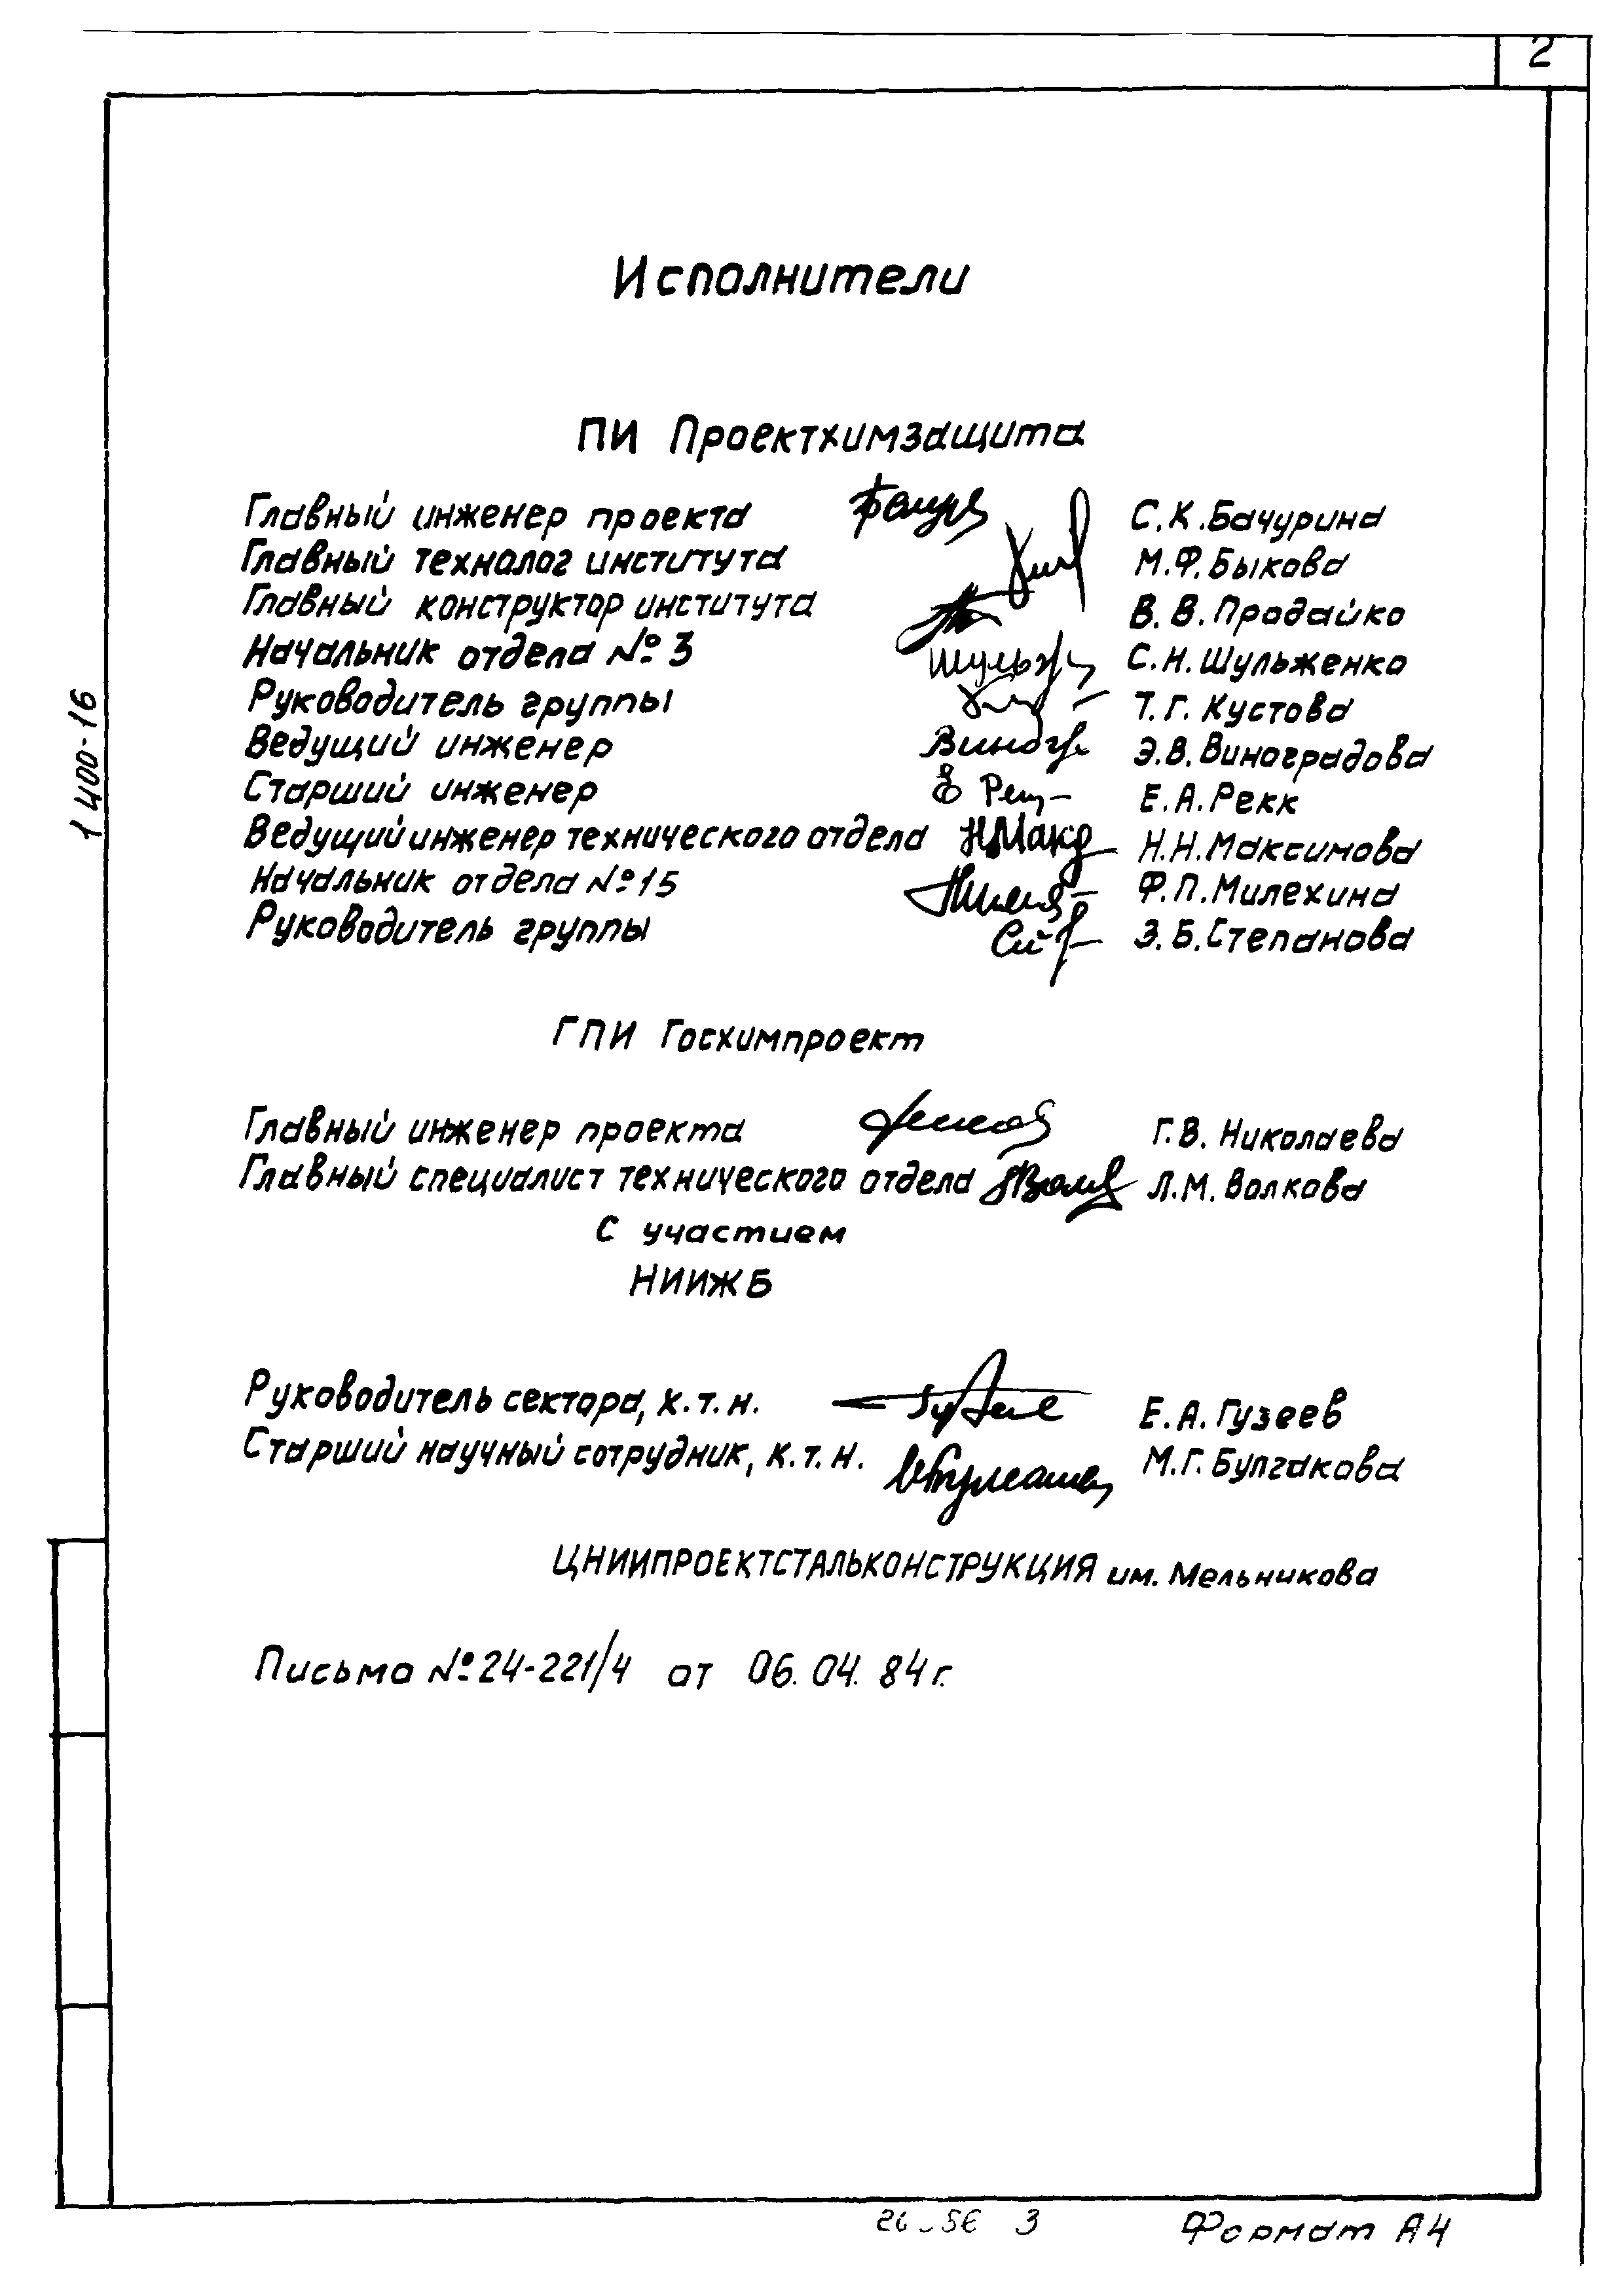 2
Исполнители
ПИ Проектхимзащита
Главный инженер проекта С.К.Бачурина
Главный технолог института М.Ф.Быкова
Главный конструктор института В.В.Продайко
Начальник отдела №3 С.Н.Шульженко
Руководитель группы Т.Г.Кустова
Ведущий инженер Э.В.Виноградова
Старший инженер Е.А.Рекк
Ведущий инженер технического отдела Н.Н.Максимова
Начальник отдела №15 Ф.П.Милехина
Руководитель группы З.Б.Степанова
ГПИ Госхимпроект
Главный инженер проекта Г.В.Николаева
Главный специалист технического отдела Л.М.Волкова
С участием
НИИЖБ
Руководитель сектора, к.т.н. Е.А.Гузеев
Старший научный сотрудник, к.т.н. М.Г.Булгакова
ЦНИИПРОЕКТСТАЛЬКОНСТРУКЦИЯ им. Мельникова
Письмо №24-221/4 от 06.04.84г.
1 400-16
3 Формат А4